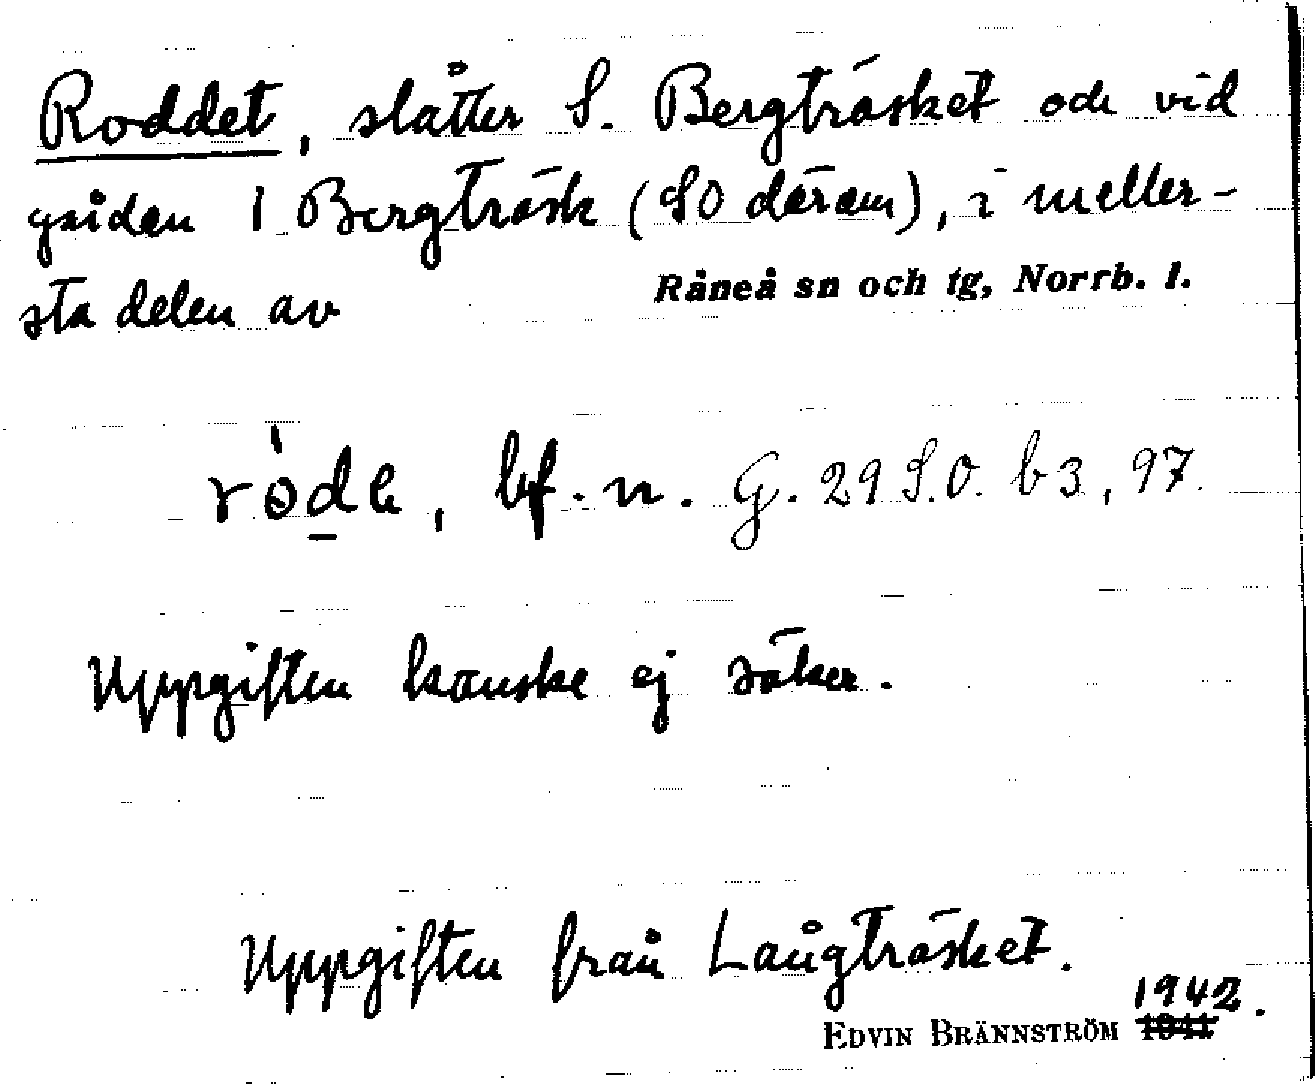 Roddet, slåtter S. Bergträsket och vid
gården 1 Bergträsk (SO därom), i meller-
sta delen av Råneå sn och tg, Norrb. l.
bf. n. G. 29 S.O. b 3, 97.
Uppgiften kanske ej säker.
Uppgiften från Långträsket.
1942.
EDVIN BRÄNNSTRÖM 1941